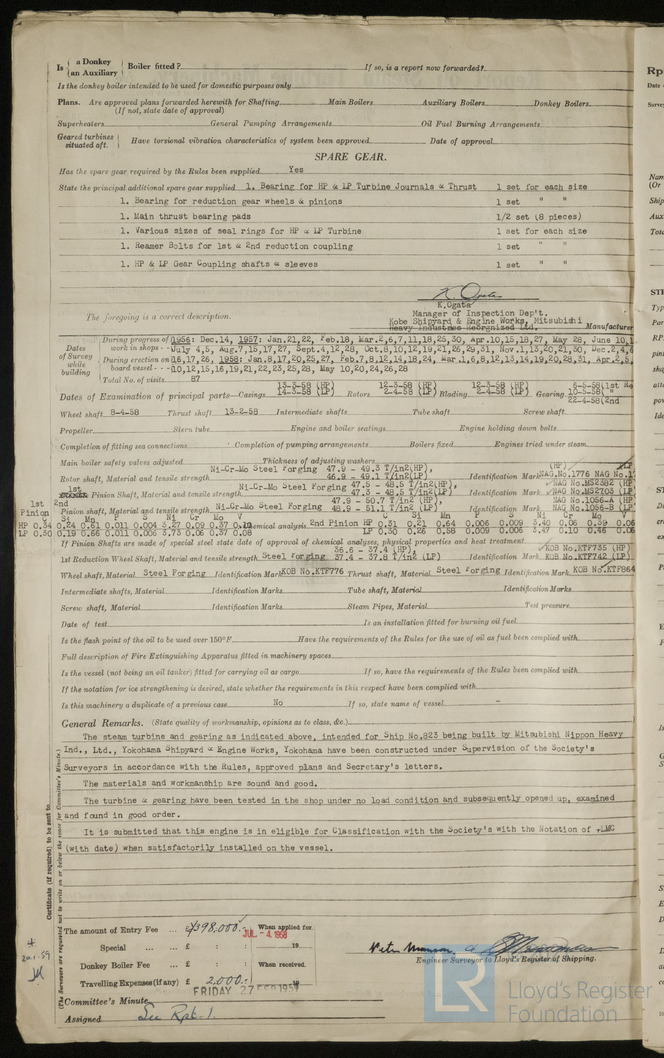 Is { a Donkey / an Auxiliary } Boiler fitted? If so, is a report now forwarded?
Is the donkey boiler intended to be used for domestic purposes only
Plans. Are approved plans forwarded herewith for Shafting Main Boilers Auxiliary Boilers Donkey Boilers
(If not, state date of approval)
Superheaters General Pumping Arrangements Oil Fuel Burning Arrangements
Geared turbines situated aft. } Have torsional vibration characteristics of system been approved Date of approval
SPARE GEAR.
Has the spare gear required by the Rules been supplied Yes
State the principal additional spare gear supplied 1. Bearing for HP & LP Turbine Journals & Thrust 1 set for each size
1. Bearing for reduction gear wheels & pinions 1 set " "
1. Main thrust bearing pads 1/2 set (8 pieces)
1. Various sizes of seal rings for HP & LP Turbine 1 set for each size
1. Reamer Bolts for 1st & 2nd reduction coupling 1 set " "
1. HP & LP Gear Coupling shafts & sleeves 1 set " "
K Ogata
K.Ogata
The foregoing is a correct description. Manager of Inspection Dep't.
Kobe Shipyard & Engine Works, Mitsubishi
Heavy Industries Reorganized Ltd. Manufacturer
Dates of Survey while building
During progress of work in shops - - 1956: Dec.14, 1957: Jan.21,22, Feb.18, Mar.2,6,7,11,18,25,30, Apr.10,15,18,27, May 28, June 10,
July 4,5, Aug.7,15,17,27, Sept.4,12,28, Oct.8,10,12,19,21,26,29,31, Nov.1,13,20,21,30, Dec.2,4,
During erection on board vessel - - - 16,17,26, 1958: Jan.8,17,20,25,27, Feb.7,8,12,14,18,24, Mar.1,6,8,12,13,14,19,20,28,31, Apr.2,5,
10,12,15,16,19,21,22,23,25,28, May 10,20,24,26,28
Total No. of visits 87
Dates of Examination of principal parts—Casings 13-3-58 (HP) 14-3-58 (LP) Rotors 12-3-58 (HP) 2-4-58 (LP) Blading 12-3-58 (HP) 2-4-58 (LP) Gearing
22-4-58(2nd
Wheel shaft 8-4-58 Thrust shaft 13-2-58 Intermediate shafts Tube shaft Screw shaft
Propeller Stern tube Engine and boiler seatings Engine holding down bolts
Completion of fitting sea connections Completion of pumping arrangements Boilers fixed Engines tried under steam
Main boiler safety valves adjusted Thickness of adjusting washers
Rotor shaft, Material and tensile strength Ni-Cr-Mo Steel Forging 47.9 - 49.3 T/in2(HP), 46.9 - 49.1 T/in2(LP) Identification Mark (HP) NAG.No.1776 NAG No.
1st Pinion Shaft, Material and tensile strength Ni-Cr-Mo Steel Forging 47.5 - 48.5 T/in2(HP), 47.3 - 48.5 T/in2(LP) Identification Mark NAG No.MS2382 (HP) NAG No.MS2703 (LP)
2nd Pinion shaft, Material and tensile strength Ni-Cr-Mo Steel Forging 47.9 - 50.7 T/in2(HP) 48.9 - 51.1 T/in2(LP) Identification Mark NAG No.1056-A (HP) NAG No.1056-B (LP)
1st Pinion Si Mn P S Ni Cr Mo V Chemical analysis 2nd Pinion C Si Mn P S Ni Cr Mo V
HP 0.34 0.24 0.61 0.011 0.004 3.27 0.09 0.37 0.10 HP 0.31 0.21 0.64 0.006 0.009 3.40 0.06 0.39 0.06
LP 0.30 0.19 0.66 0.011 0.006 3.73 0.06 0.37 0.08 LP 0.30 0.26 0.58 0.009 0.006 3.47 0.10 0.46 0.06
If Pinion Shafts are made of special steel state date of approval of chemical analyses, physical properties and heat treatment
1st Reduction Wheel Shaft, Material and tensile strength Steel Forging 36.6 - 37.4 (HP) 37.4 - 37.8 T/in2 (LP) Identification Mark KOB No.KTF735 (HP) KOB No.KTF742 (LP)
Wheel shaft, Material Steel Forging Identification Mark KOB No.KTF776 Thrust shaft, Material Steel Forging Identification Mark KOB No.KTF864
Intermediate shafts, Material Identification Marks Tube shaft, Material Identification Marks
Screw shaft, Material Identification Marks Steam Pipes, Material Test pressure
Date of test Is an installation fitted for burning oil fuel
Is the flash point of the oil to be used over 150°F. Have the requirements of the Rules for the use of oil as fuel been complied with
Full description of Fire Extinguishing Apparatus fitted in machinery spaces
Is the vessel (not being an oil tanker) fitted for carrying oil as cargo If so, have the requirements of the Rules been complied with
If the notation for ice strengthening is desired, state whether the requirements in this respect have been complied with
Is this machinery a duplicate of a previous case No If so, state name of vessel -
General Remarks. (State quality of workmanship, opinions as to class, &c.)
The steam turbine and gearing as indicated above, intended for Ship No.823 being built by Mitsubishi Nippon Heavy
Ind., Ltd., Yokohama Shipyard & Engine Works, Yokohama have been constructed under Supervision of the Society's
Surveyors in accordance with the Rules, approved plans and Secretary's letters.
The materials and workmanship are sound and good.
The turbine & gearing have been tested in the shop under no load condition and subsequently opened up, examined
and found in good order.
It is submitted that this engine is in eligible for Classification with the Society's with the Notation of +LMC
(with date) when satisfactorily installed on the vessel.
Certificate (if required) to be sent to
(The Surveyors are requested not to write on or below the space for Committee's Minute.)
The amount of Entry Fee ... ¥398,000. When applied for
JUL - 4. 1958
Special ... ... £ : : 19
Donkey Boiler Fee ... £ : : When received.
Travelling Expenses (if any) £ 2,000: 19
Engineer Surveyor to Lloyd's Register of Shipping.
FRIDAY 27 FEB 1959
Committee's Minute
Assigned See Rpt. 1.
20.1.59
LR
Lloyd's Register
Foundation